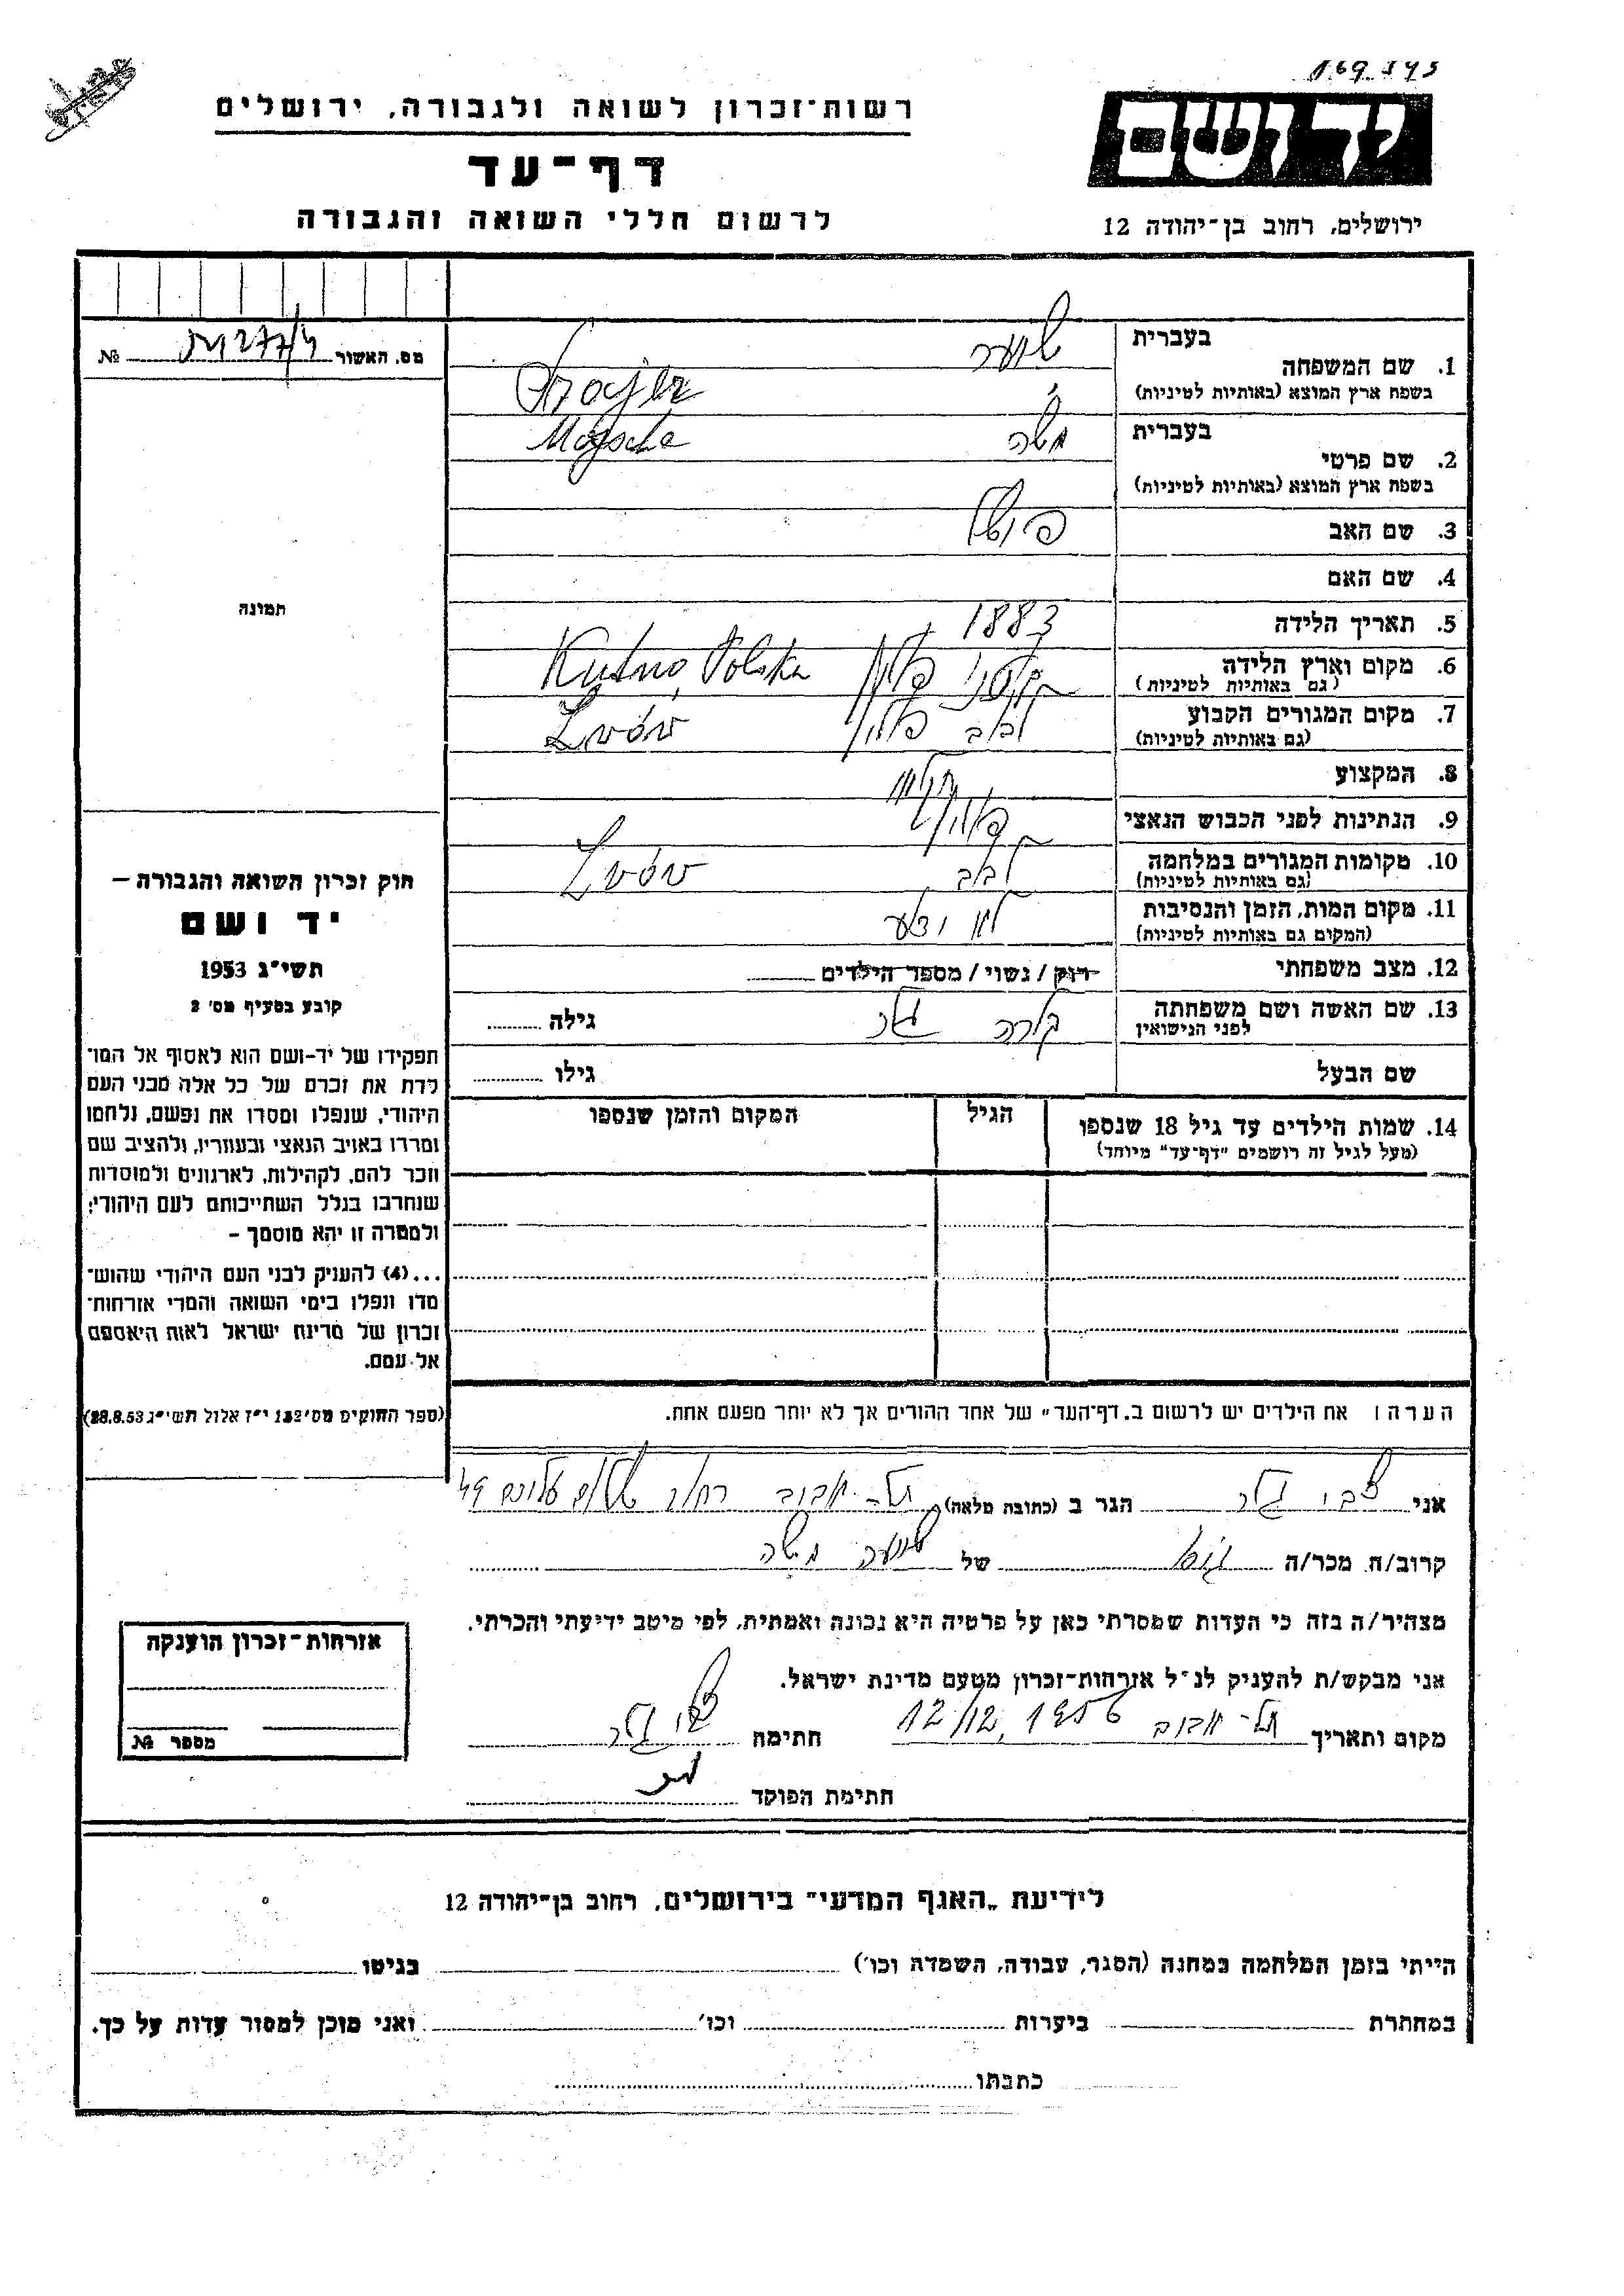 169 245
יד ושם
ירושלים, רחוב בן־יהודה 12
רשות־זכרון לשואה ולגבורה, ירושלים
דף־עד
לרשום חללי השואה והגבורה
מס. האשור №
1. שם המשפחה
בעברית
בשפת ארץ המוצא (באותיות לטיניות)
2. שם פרטי
בעברית משה
בשפת ארץ המוצא (באותיות לטיניות) Mojsche
3. שם האב
4. שם האם
5. תאריך הלידה 1883
6. מקום וארץ הלידה פולין Kutno, Polska
(גם באותיות לטיניות)
7. מקום המגורים הקבוע לבוב פולין Lwów
(גם באותיות לטיניות)
8. המקצוע
9. הנתינות לפני הכבוש הנאצי
10. מקומות המגורים במלחמה לבוב Lwów
(גם באותיות לטיניות)
11. מקום המות, הזמן והנסיבות לא ידוע
(המקום גם באותיות לטיניות)
12. מצב משפחתי רוק / נשוי / מספר הילדים
13. שם האשה ושם משפחתה קלרה גילה
לפני הנישואין
שם הבעל גילו
14. שמות הילדים עד גיל 18 שנספו הגיל המקום והזמן שנספו
(מעל לגיל זה רושמים "דף־עד" מיוחד)
הערה: את הילדים יש לרשום ב„דף־העד" של אחד ההורים אך לא יותר מפעם אחת.
תמונה
חוק זכרון השואה והגבורה –
יד ושם
תשי"ג 1953
קובע בסעיף מס' 2
תפקידו של יד-ושם הוא לאסוף אל המו־
לדת את זכרם של כל אלה מבני העם
היהודי, שנפלו ומסרו את נפשם, נלחמו
ומרדו באויב הנאצי ובעוזריו, ולהציב שם
וזכר להם, לקהילות, לארגונים ולמוסדות
שנחרבו בגלל השתייכותם לעם היהודי;
ולמטרה זו יהא מוסמך –
...(4) להעניק לבני העם היהודי שהוש־
מדו ונפלו בימי השואה והמרי אזרחות־
זכרון של מדינת ישראל לאות היאספם
אל עמם.
(ספר החוקים מס' 132 י"ז אלול תשי"ג 28.8.53)
אני צבי הגר ב (כתובת מלאה) תל-אביב רחוב
קרוב/ה מכר/ה של משה
מצהיר/ה בזה כי העדות שמסרתי כאן על פרטיה היא נכונה ואמתית, לפי מיטב ידיעתי והכרתי.
אני מבקש/ת להעניק לנ"ל אזרחות-זכרון מטעם מדינת ישראל.
מקום ותאריך תל-אביב 12/12, 1956 חתימה צבי
חתימת הפוקד
אזרחות-זכרון הוענקה
מספר №
לידיעת „האגף המדעי" בירושלים, רחוב בן-יהודה 12
הייתי בזמן המלחמה במחנה (הסגר, עבודה, השמדה וכו') בגיטו
במחתרת ביערות וכו' ואני מוכן למסור עדות על כך.
כתבתו